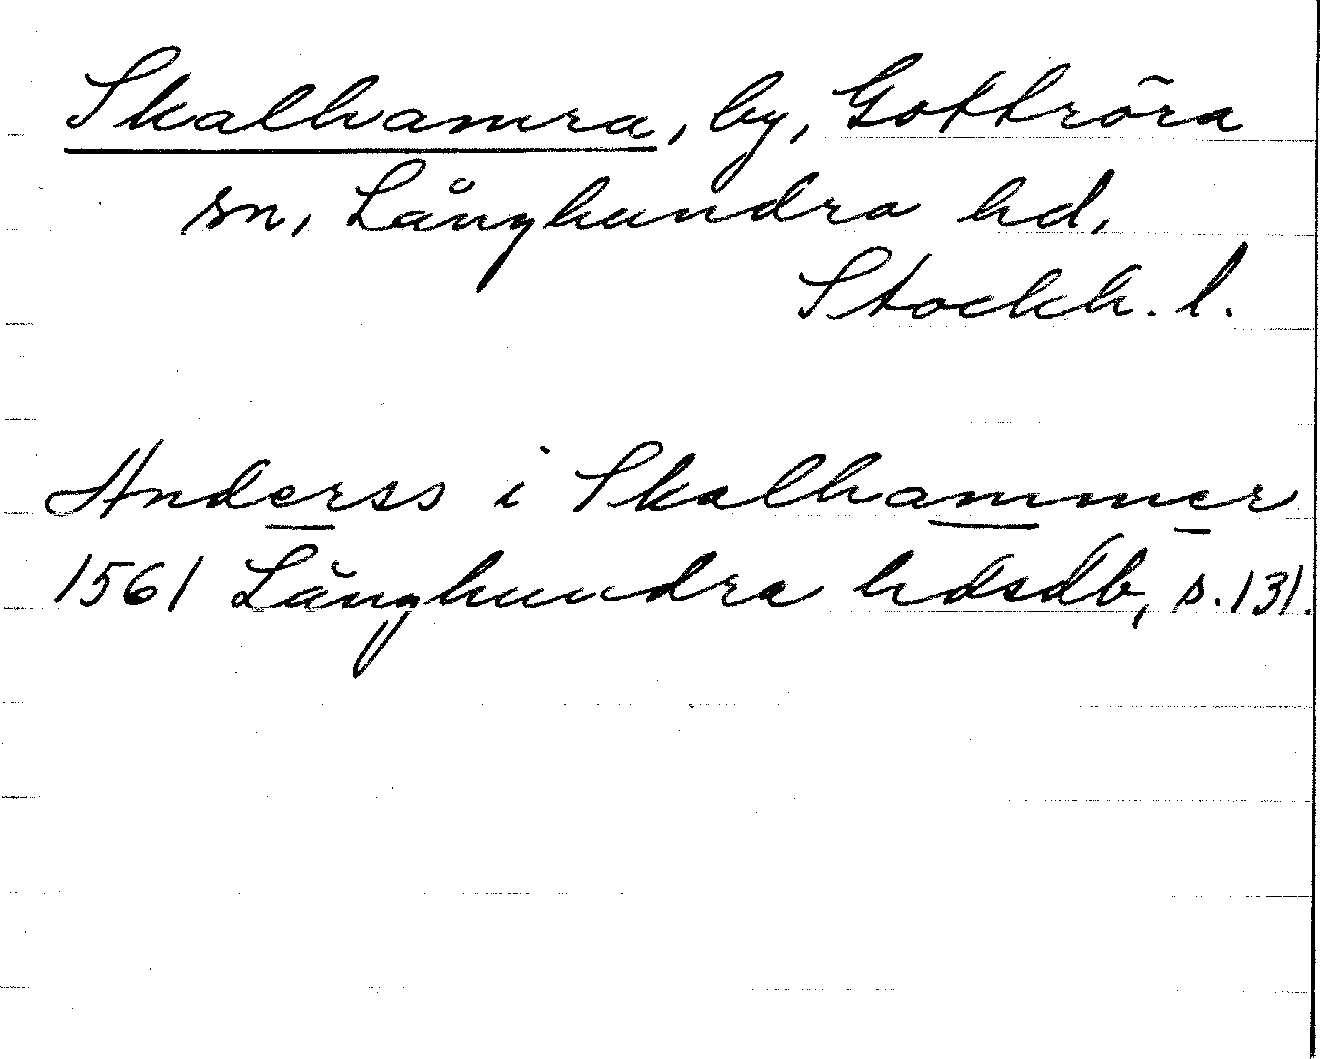 Skalhamra, by, Gottröra
sn, Långhundra hd.
Stockh. l.
Anderss i Skalhammer
1561 Långhundra hdsdb, s. 131.